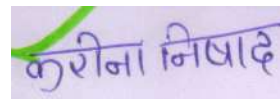 करीना निषाद